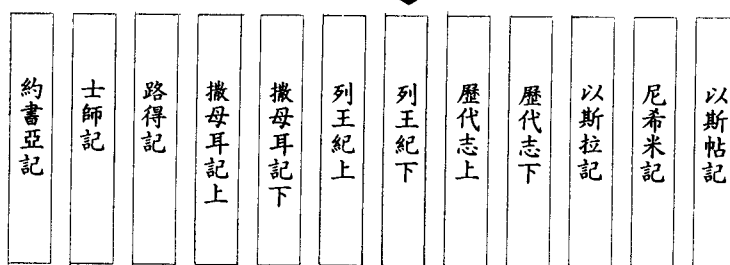 約書亞記
士師記
路得記
撒母耳記上
撒母耳記下
列王紀上
列王紀下
歷代志上
歷代志下
以斯拉記
尼希米記
以斯帖記